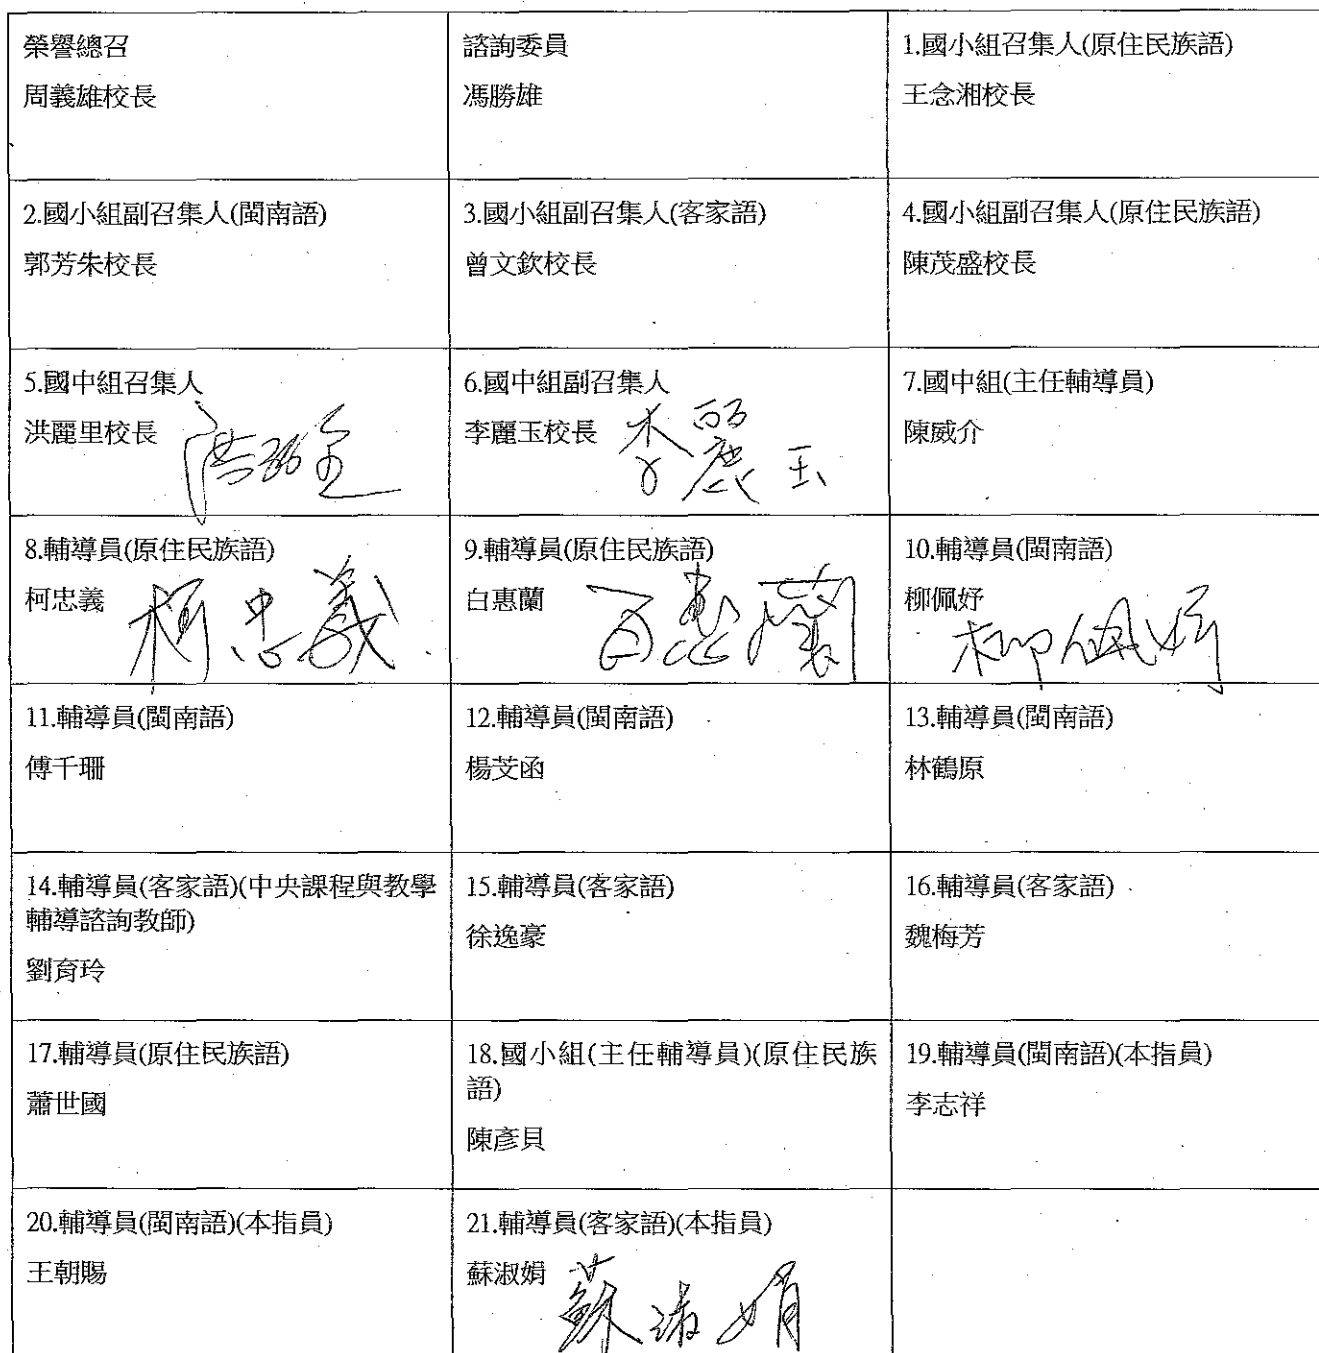 榮譽總召
周義雄校長
諮詢委員
馮勝雄
1.國小組召集人(原住民族語)
王念湘校長
2.國小組副召集人(閩南語)
郭芳朱校長
3.國小組副召集人(客家語)
曾文欽校長
4.國小組副召集人(原住民族語)
陳茂盛校長
5.國中組召集人
洪麗里校長
6.國中組副召集人
李麗玉校長
李麗玉
7.國中組(主任輔導員)
陳威介
8.輔導員(原住民族語)
柯忠義
柯忠義
9.輔導員(原住民族語)
白惠蘭
白惠蘭
10.輔導員(閩南語)
柳佩妤
柳佩妤
11.輔導員(閩南語)
傅千珊
12.輔導員(閩南語)
楊芠函
13.輔導員(閩南語)
林鶴原
14.輔導員(客家語)(中央課程與教學
輔導諮詢教師)
劉育玲
15.輔導員(客家語)
徐逸豪
16.輔導員(客家語)
魏梅芳
17.輔導員(原住民族語)
蕭世國
18.國小組(主任輔導員)(原住民族
語)
陳彥貝
19.輔導員(閩南語)(本指員)
李志祥
20.輔導員(閩南語)(本指員)
王朝賜
21.輔導員(客家語)(本指員)
蘇淑娟
蘇淑娟